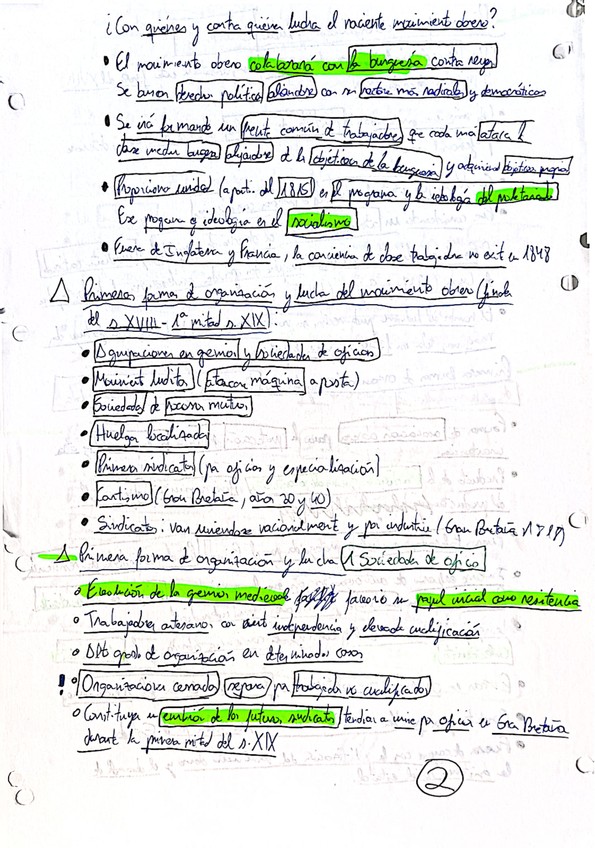 ¿Con quiénes y contra quiénes lucha el naciente movimiento obrero?
• El movimiento obrero colaborará con la burguesía contra
Se buscan derechos políticos aliándose con su sectores más radicales y democráticos
• Se irá formando un frente común de trabajadores que cada más
clase media burguesa alejándose de la objetivos de la burguesía y objetivos propios
• Proporciona unidad (a part. del 1815) es el programa y la ideología del proletariado
Ese programa e ideología es el socialismo
• Fuera de Inglaterra y Francia, la conciencia de clase trabajadora no exist en 1848
△ Primeras forma de organización y lucha del movimiento obrero (finales
del s. XVIII - 1ª mitad s. XIX):
• Agrupaciones en gremios y sociedades de oficios
• Moviment luditas (atacar máquina a posta)
• Sociedades de socorros mutuos
• Huelga localizadas
• Primeros sindicatos (por oficios y especialización)
• Cartismo (Gran Bretaña, años 30 y 40)
• Sindicatos: van uniendose nacionalment y por industria (Gran Bretaña
△ Primera forma de organización y lucha 1 Sociedades de oficio
• Evolución de los gremios medievales su papel inicial como resistencia
• Trabajadores artesanos con cierta independencia y elevada cualificación
• grado de organización en determinados casos
! • Organizaciones cerradas separa por trabajador no cualificados
• Constituyen en embrión de los futuros sindicatos tendían a unirse por oficios en Gran Bretaña
durante la primera mitad del s. XIX
2